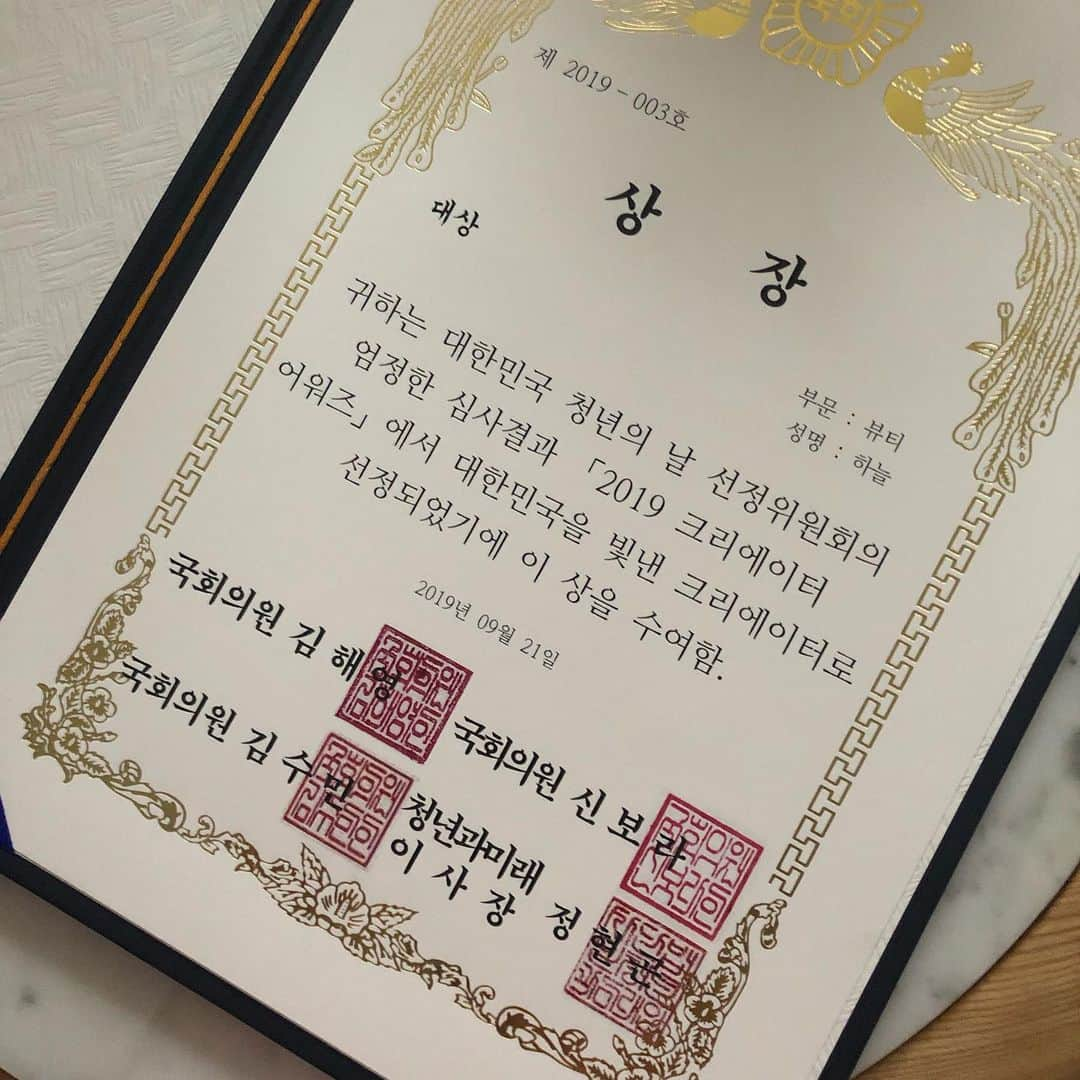 국회
제 2019 - 003호
상 장
대상
부문 : 뷰티
성명 : 하늘
귀하는 대한민국 청년의 날 선정위원회의
엄정한 심사결과 「2019 크리에이터
어워즈」에서 대한민국을 빛낸 크리에이터로
선정되었기에 이 상을 수여함.
2019년 09월 21일
국회의원 김 해 영
국회의원 신 보 라
국회의원 김 수 민
청년과미래
이 사 장 정 현 곤